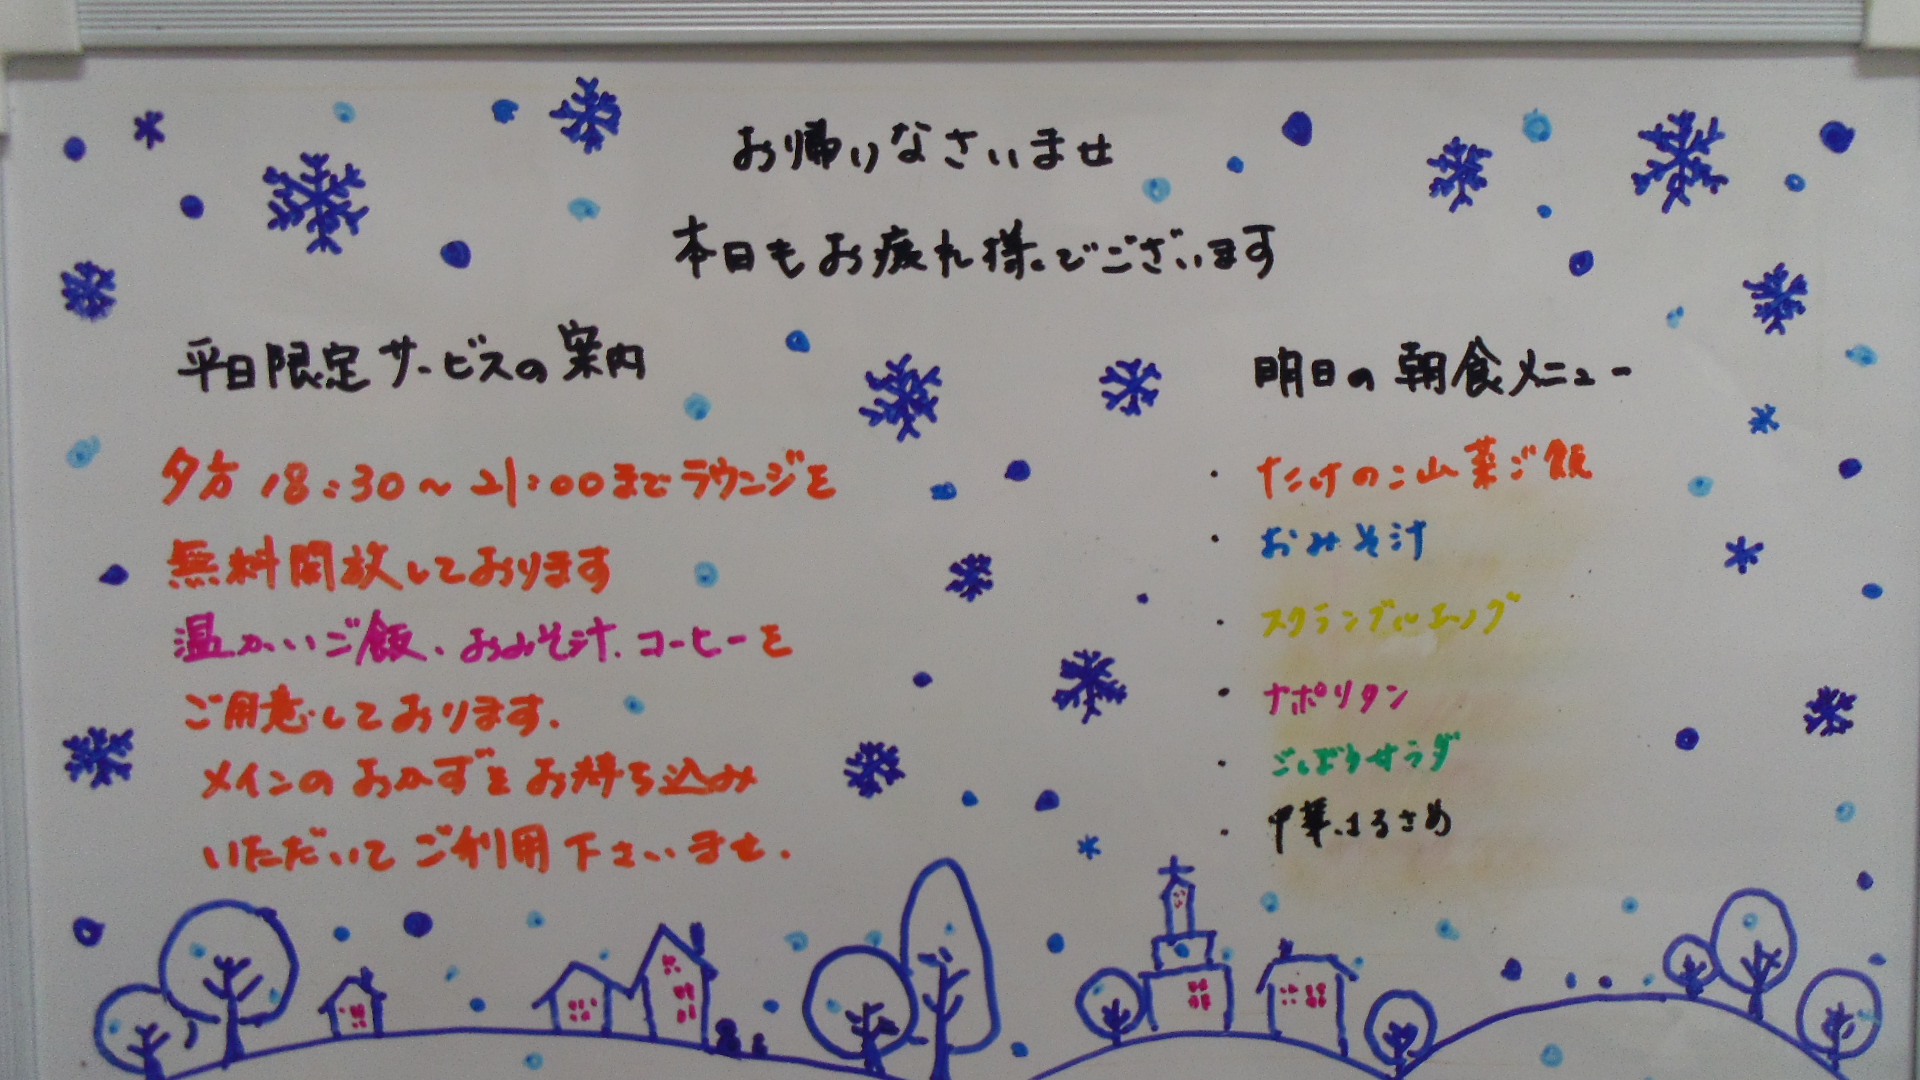 お帰りなさいませ
本日もお疲れ様でございます
平日限定サービスの案内
夕方18:30〜21:00までラウンジを
無料開放しております
温かいご飯、おみそ汁、コーヒーを
ご用意しております.
メインのおかずをお持ち込み
いただいてご利用下さいませ.
明日の朝食メニュー
・たけのこ山菜ご飯
・おみそ汁
・スクランブルエッグ
・ナポリタン
・ごぼうサラダ
・中華はるさめ